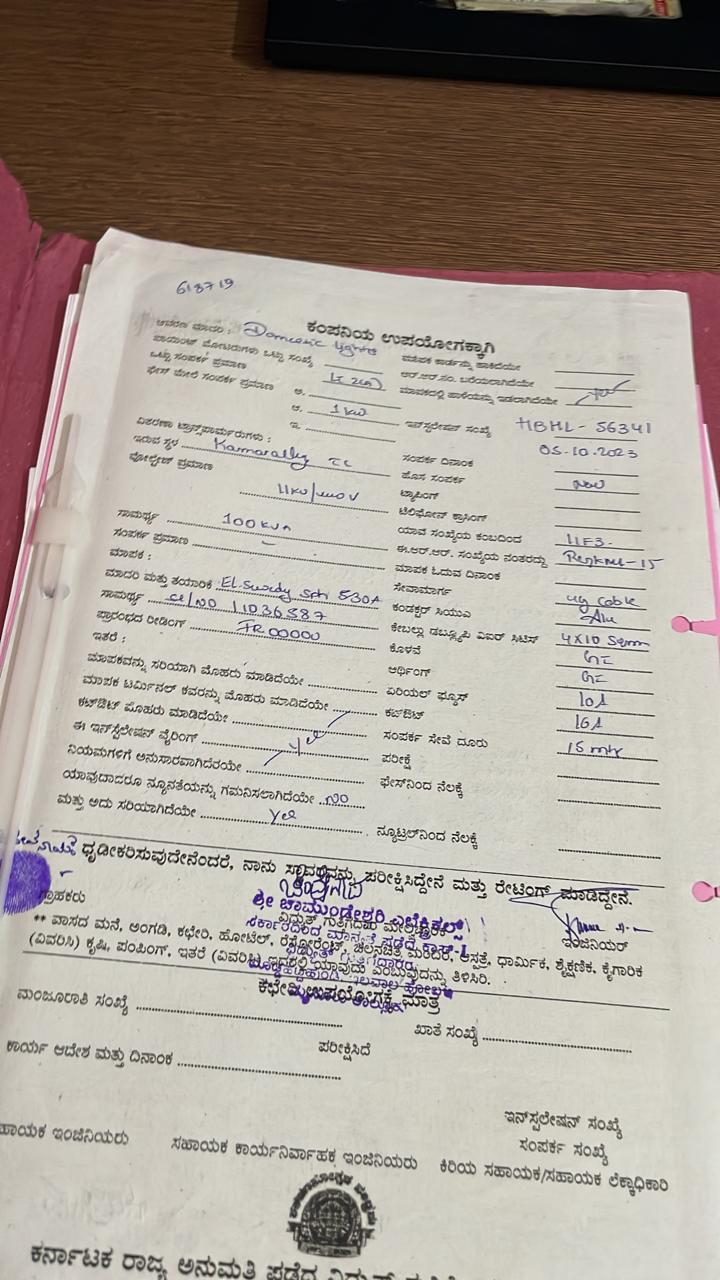 618719
ಕಂಪನಿಯ ಉಪಯೋಗಕ್ಕಾಗಿ
ಆವರಣ ಮಾದರಿ : Domestic lights
ಪಾಯಿಂಟ್ ಮೋಟರುಗಳು ಒಟ್ಟು ಸಂಖ್ಯೆ
ಮಾಪಕ ಕಾರ್ಡನ್ನು ಹಾಕಿದೆಯೇ
ಒಟ್ಟು ಸಂಪರ್ಕ ಪ್ರಮಾಣ
ಆರ್.ಆರ್.ನಂ. ಬರೆಯಲಾಗಿದೆಯೇ
ಫೇಸ್ ಮೇಲೆ ಸಂಪರ್ಕ ಪ್ರಮಾಣ ಅ.
ಮಾಪಕದಲ್ಲಿ ಹಾಳೆಯನ್ನು ಇಡಲಾಗಿದೆಯೇ yes
ಆ. 1 kw
ಇನ್‌ಸ್ಟಲೇಷನ್ ಸಂಖ್ಯೆ HBHL - 56341
ಇ.
05-10-2023
ವಿತರಣಾ ಟ್ರಾನ್ಸ್‌ಫಾರ್ಮರುಗಳು :
ಸಂಪರ್ಕ ದಿನಾಂಕ
ಇರುವ ಸ್ಥಳ Kamaralley TC
ಹೊಸ ಸಂಪರ್ಕ new
ವೋಲ್ಟೇಜ್ ಪ್ರಮಾಣ
ಟ್ಯಾಪಿಂಗ್
ಟೆಲಿಫೋನ್ ಕ್ರಾಸಿಂಗ್
ಯಾವ ಸಂಖ್ಯೆಯ ಕಂಬದಿಂದ
ಸಾಮರ್ಥ್ಯ 100 kva
ಈ.ಆರ್.ಆರ್. ಸಂಖ್ಯೆಯ ನಂತರದ್ದು
ಸಂಪರ್ಕ ಪ್ರಮಾಣ –
ಮಾಪಕ ಓದುವ ದಿನಾಂಕ
ಮಾಪಕ :
ಸೇವಾಮಾರ್ಗ ug cable
ಮಾದರಿ ಮತ್ತು ತಯಾರಿಕೆ El-Swedy
ಕಂಡಕ್ಟರ್ ಸಿಯುವಿ Alu
ಸಾಮರ್ಥ್ಯ Sl/NO 11036387
4X10 Sqmm
ಪ್ರಾರಂಭದ ರೀಡಿಂಗ್ IR 00000
ಕೊಳವೆ GI
ಇತರೆ :
ಅರ್ಥಿಂಗ್ GI
ಮಾಪಕವನ್ನು ಸರಿಯಾಗಿ ಮೊಹರು ಮಾಡಿದೆಯೇ
ಏರಿಯಲ್ ಫ್ಯೂಸ್ 10A
ಮಾಪಕ ಟರ್ಮಿನಲ್ ಕವರನ್ನು ಮೊಹರು ಮಾಡಿದೆಯೇ
ಕಟ್‌ಔಟ್ 16A
ಕಟ್‌ಔಟ್ ಮೊಹರು ಮಾಡಿದೆಯೇ
ಸಂಪರ್ಕ ಸೇವೆ ದೂರು 15 mtr
ಈ ಇನ್‌ಸ್ಟಲೇಷನ್ ವೈರಿಂಗ್ yes
ಪರೀಕ್ಷೆ
ನಿಯಮಗಳಿಗೆ ಅನುಸಾರವಾಗಿದೆಯೇ
ಫೇಸ್‌ನಿಂದ ನೆಲಕ್ಕೆ
ಯಾವುದಾದರೂ ನ್ಯೂನತೆಯನ್ನು ಗಮನಿಸಲಾಗಿದೆಯೇ NO
ಮತ್ತು ಅದು ಸರಿಯಾಗಿದೆಯೇ yes
ನ್ಯೂಟ್ರಲ್‌ನಿಂದ ನೆಲಕ್ಕೆ
ಧೃಡೀಕರಿಸುವುದೇನೆಂದರೆ, ನಾನು ಸ್ಥಾವರವನ್ನು ಪರೀಕ್ಷಿಸಿದ್ದೇನೆ ಮತ್ತು ರೇಟಿಂಗ್ ಮಾಡಿದ್ದೇನೆ.
ಶ್ರೀ ಚಾಮುಂಡೇಶ್ವರಿ ಎಲೆಕ್ಟ್ರಿಕಲ್ಸ್
ಗ್ರಾಹಕರು
ವಿದ್ಯುತ್ ಗುತ್ತಿಗೆದಾರ ಮೇಲ್ವಿಚಾರಕ
ಇಂಜಿನಿಯರ್
** ವಾಸದ ಮನೆ, ಅಂಗಡಿ, ಕಛೇರಿ, ಹೋಟೆಲ್, ರೆಸ್ಟೋರೆಂಟ್, ಚಲನಚಿತ್ರ ಮಂದಿರ, ಆಸ್ಪತ್ರೆ, ಧಾರ್ಮಿಕ, ಶೈಕ್ಷಣಿಕ, ಕೈಗಾರಿಕ
(ವಿವರಿಸಿ) ಕೃಷಿ, ಪಂಪಿಂಗ್, ಇತರೆ (ವಿವರಿಸಿ) ಇದರಲ್ಲಿ ಯಾವುದು ಎಂಬುವುದನ್ನು ತಿಳಿಸಿರಿ.
ಕಛೇರಿ ಉಪಯೋಗಕ್ಕೆ ಮಾತ್ರ
ಮಂಜೂರಾತಿ ಸಂಖ್ಯೆ
ಖಾತೆ ಸಂಖ್ಯೆ
ಕಾರ್ಯ ಆದೇಶ ಮತ್ತು ದಿನಾಂಕ
ಪರೀಕ್ಷಿಸಿದೆ
ಇನ್‌ಸ್ಟಲೇಷನ್ ಸಂಖ್ಯೆ
ಸಂಪರ್ಕ ಸಂಖ್ಯೆ
ಹಾಯಕ ಇಂಜಿನಿಯರು
ಸಹಾಯಕ ಕಾರ್ಯನಿರ್ವಾಹಕ ಇಂಜಿನಿಯರು
ಕಿರಿಯ ಸಹಾಯಕ/ಸಹಾಯಕ ಲೆಕ್ಕಾಧಿಕಾರಿ
ಕರ್ನಾಟಕ ರಾಜ್ಯ ಅನುಮತಿ ಪಡೆದ ವಿದ್ಯುತ್